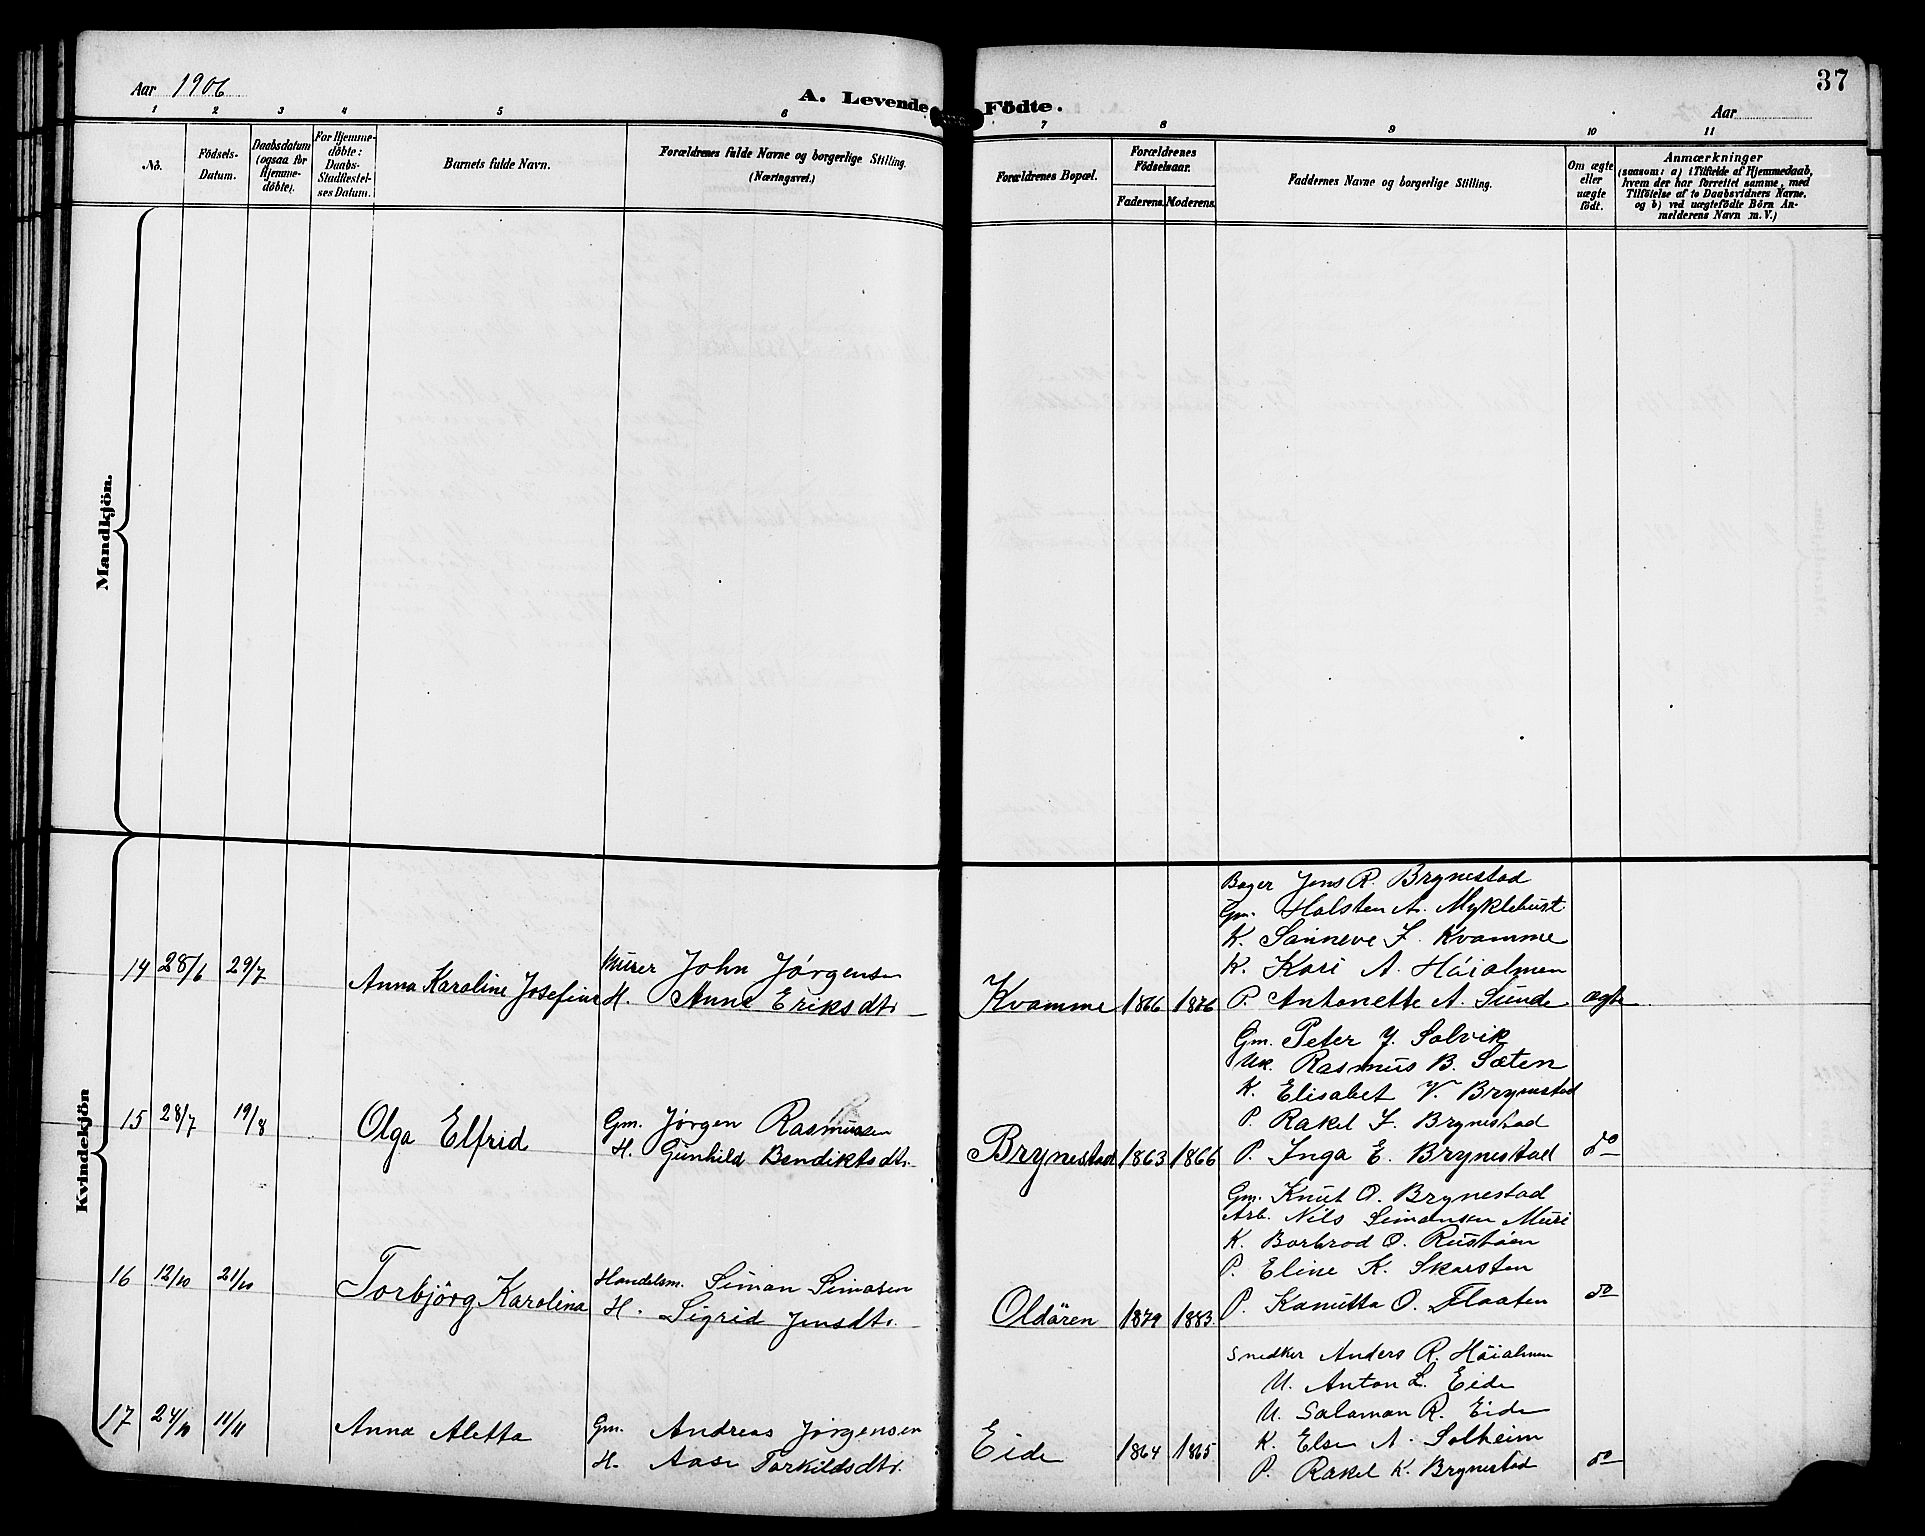 37
Aar 1906
A. Levende Födte.
Aar
1 2 3 4 5 6 7 8 9 10 11
No.
Födsels-
Datum.
Daabsdatum
(ogsaa for
Hjemme-
döbte).
For Hjemme-
döbte:
Daabs-
Stadfæstel-
ses Datum.
Barnets fulde Navn.
Forældrenes fulde Navne og borgerlige Stilling.
(Næringsvei.)
Forældrenes Bopæl.
Forældrenes
Födselsaar.
Faderens.
Moderens.
Faddernes Navne og borgerlige Stilling.
Om ægte
eller
uægte
födt.
Anmærkninger
(saasom: a) i Tilfælde af Hjemmedaab,
hvem der har forrettet samme, med
Tilföielse af to Daabsvidners Navne.
og b) ved uægtefödte Börn An-
melderens Navn m. V.)
Mandkjön.
Kvindekjön
14 28/6 29/7
Anna Karoline Josefine
Murer John Jörgensen
H. Anne Eriksdtr.
Kvamme 1866 1876
Bager Jens R. Brynestad
Gm. Halsten A. Myklebust
K. Sanneve J. Kvamme
K. Kari A. Håialmen
P. Antonette A. Sunde
ægte
15 28/7 19/8
Olga Elfrid
Gm. Jörgen Rasmusen
H. Gunhild Bendiktsdtr.
Brynestad 1863 1866
Gm. Peter J. Solvik
Uk. Rasmus B. Sæten
K. Elisabet V. Brynestad
P. Rakel J. Brynestad
P. Inga E. Brynestad
do
16 12/10 21/10
Torbjörg Karolina
Handelsm. Simon Simasen
H. Sigrid Jensdtr.
Oldören 1879 1883.
Gm. Knut O. Brynestad
Arb. Nils Simonsen Muri
K. Borbrod O. Rustöen
P. Eline K. Skarsten
P. Kanutta O. Flaaten
do
17 24/10 11/11
Anna Aletta
Gm. Andreas Jörgensen
H. Aase Torkildsdtr.
Eide 1864 1865
Snedker Anders R. Håialmen
U. Anton L. Eide
U. Salamon R. Eide
K. Else A. Solheim
P. Rakel K. Brynestad
do